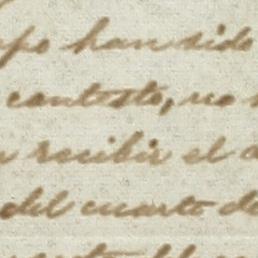 han sido
contesto, no
recibir el
del cuarto de